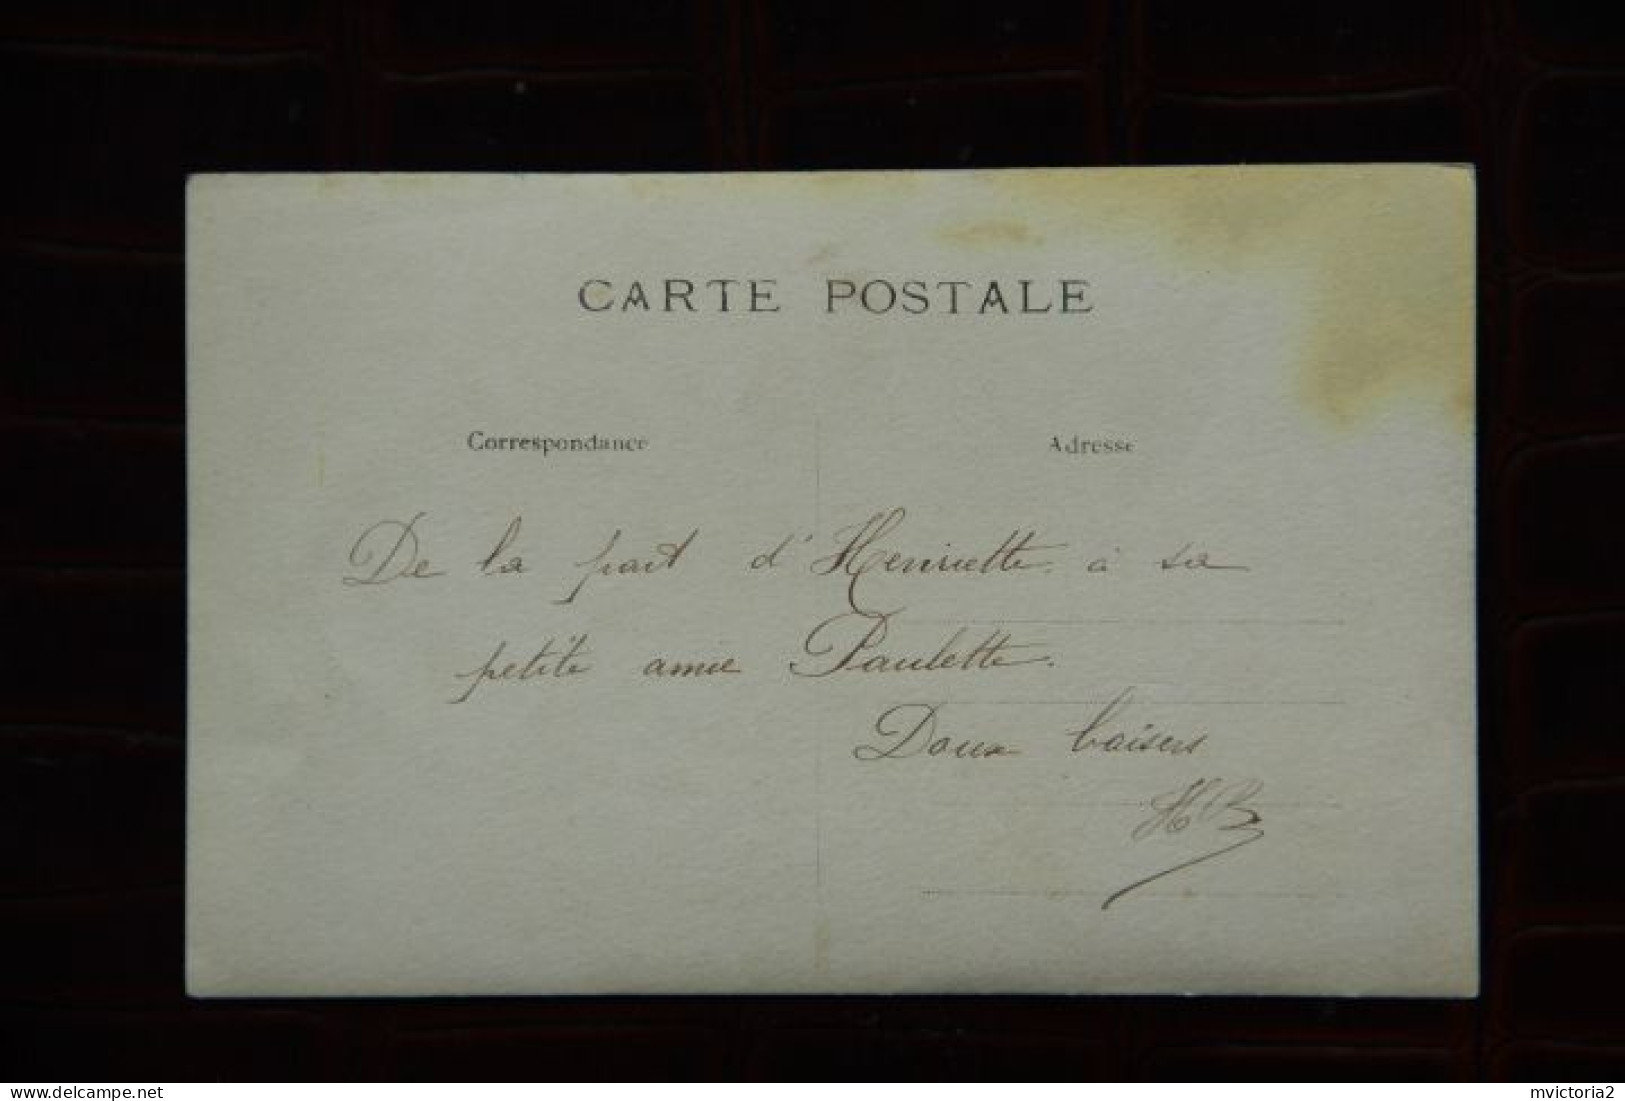 CARTE POSTALE
Correspondance
Adresse
De la part d'Henriette à sa
petite amie Paulette.
Doux baisers
HB
www.delcampe.net
mvictoria2